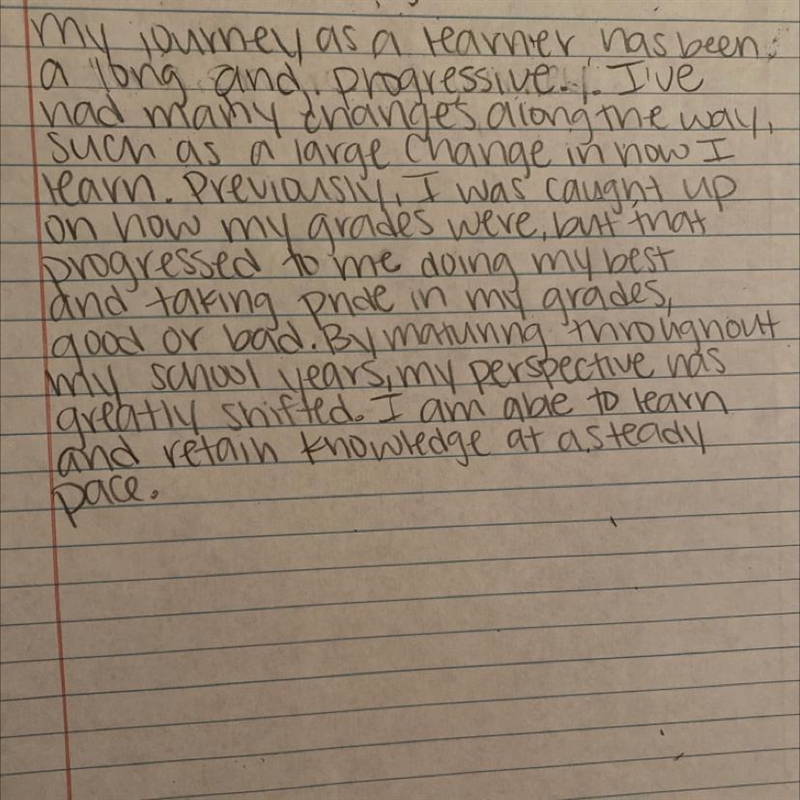 my journey as a learner has been
a long and progressive. I've
had many changes along the way,
such as a large change in how I
learn. Previously, I was caught up
on how my grades were, but that
progressed to me doing my best
and taking pride in my grades,
good or bad. By maturing throughout
my school years, my perspective has
greatly shifted. I am able to learn
and retain knowledge at a steady
pace.